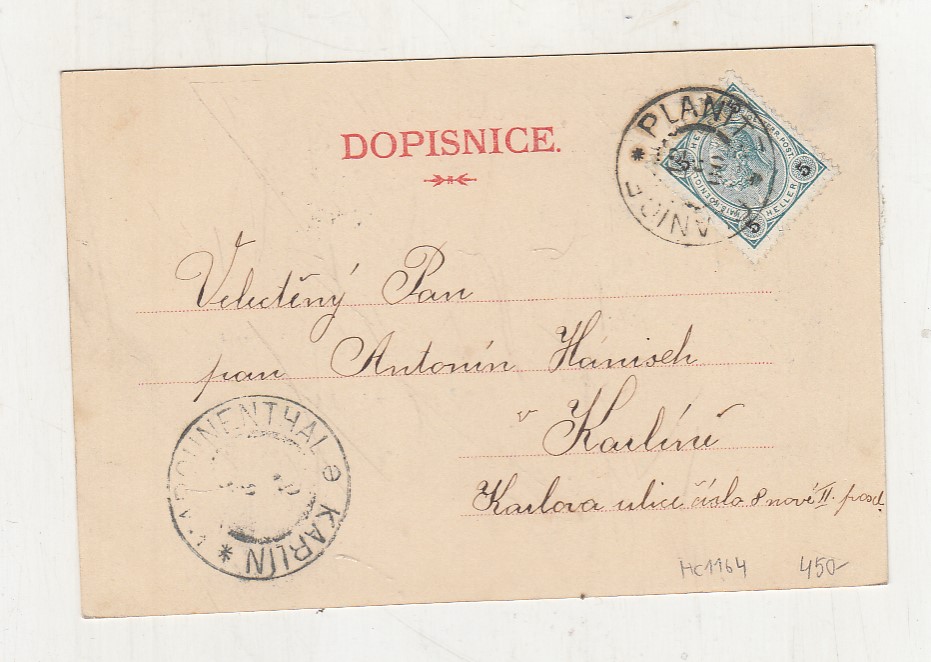 DOPISNICE.
PLANIT
ANICE
5 HELLER 5
Velectěný Pan
pan Antonín Hánisch
v Karlíně
Karlova ulice číslo 8 nové II. posch.
KAROLINENTHAL e KARLÍN *
Hc1164 450-